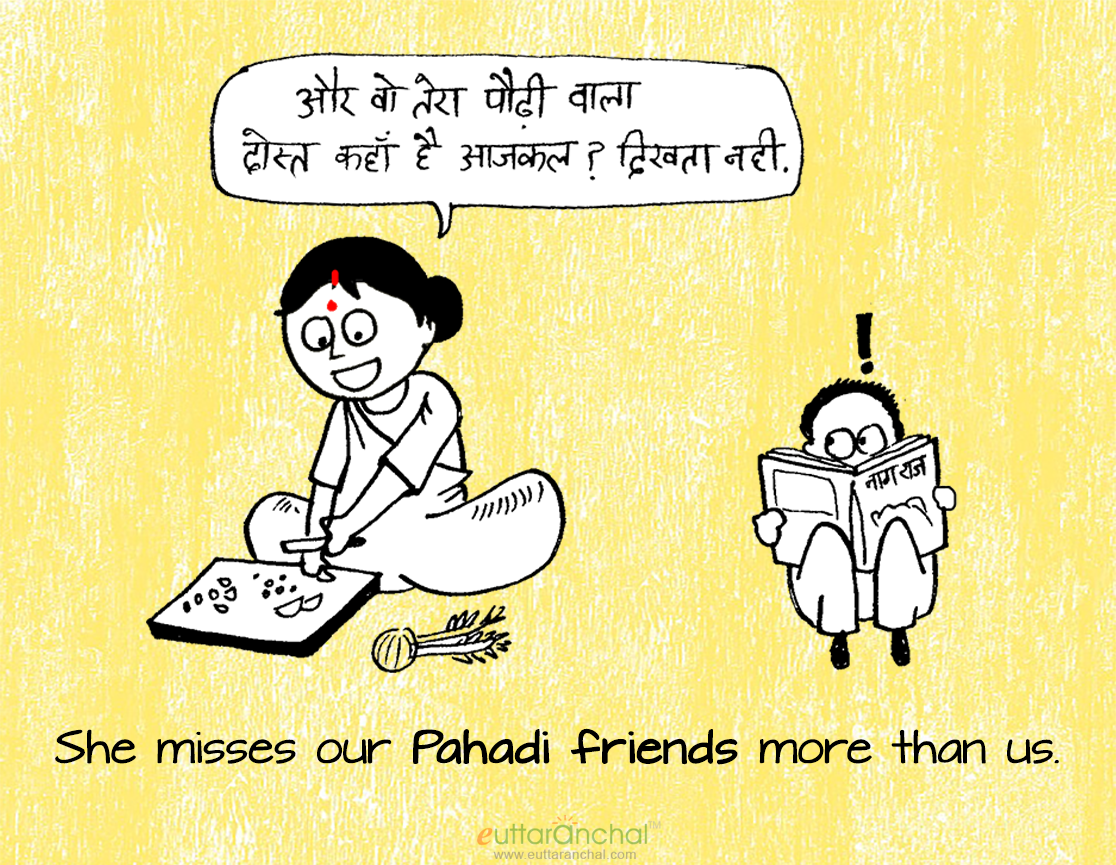 और वो तेरा पौढ़ी वाला
दोस्त कहाँ है आजकल? दिखता नही.
!
नागराज
She misses our Pahadi friends more than us.
euttaranchal™
www.euttaranchal.com